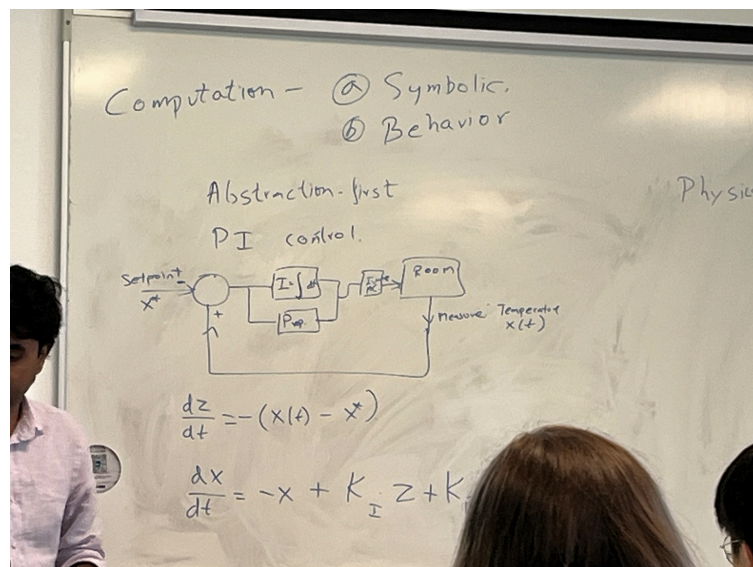 Computation - ⓐ Symbolic.
ⓑ Behavior
Abstraction-first
Physic
PI control.
Setpoint
x*
I = ∫ dt
Prop.
Room
measure Temperature
x(t)
+
dz/dt = -(x(t) - x*)
dx/dt = -x + K_I z + K